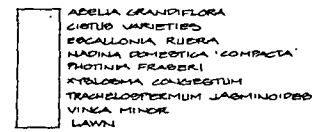 ABELIA GRANDIFLORA
CISTUS VARIETIES
ESCALLONIA RUBRA
NADINA DOMESTICA 'COMPACTA'
PHOTINIA FRASERI
XYLOSMA CONGESTUM
TRACHELOSPERMUM JASMINOIDES
VINCA MINOR
LAWN